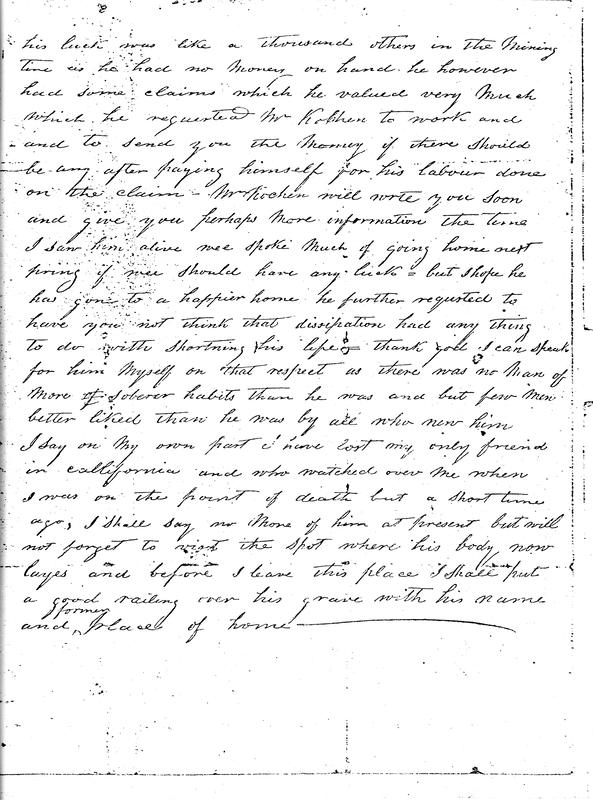 his luck was like a thousand others in the Mining
time as he had no Money on hand. he however
had some claims which he valued very Much
which he requested Mr Kobhen to work and
and to send you the Money if there should
be any after paying himself for his labour done
on the claim - Mr Kochen will write you soon
and give you perhaps More information the time
I saw him alive wee spoke Much of going home next
pring if wee should have any luck - but I hope he
has gone to a happier home he further requsted to
have you not think that dissipation had any thing
to do with shortning his life & thank god I can speak
for him Myself on that respect as there was no Man of
More of soberer habits than he was and but few Men
better liked than he was by all who new him
I say on My own part I have lost my only friend
in callifornia and who watched over Me when
I was on the point of death but a short time
ago, I shall say no More of him at present but will
not forget to visit the spot where his body now
layes and before I leave this place I shall put
a good railing over his grave with his name
and former place of home